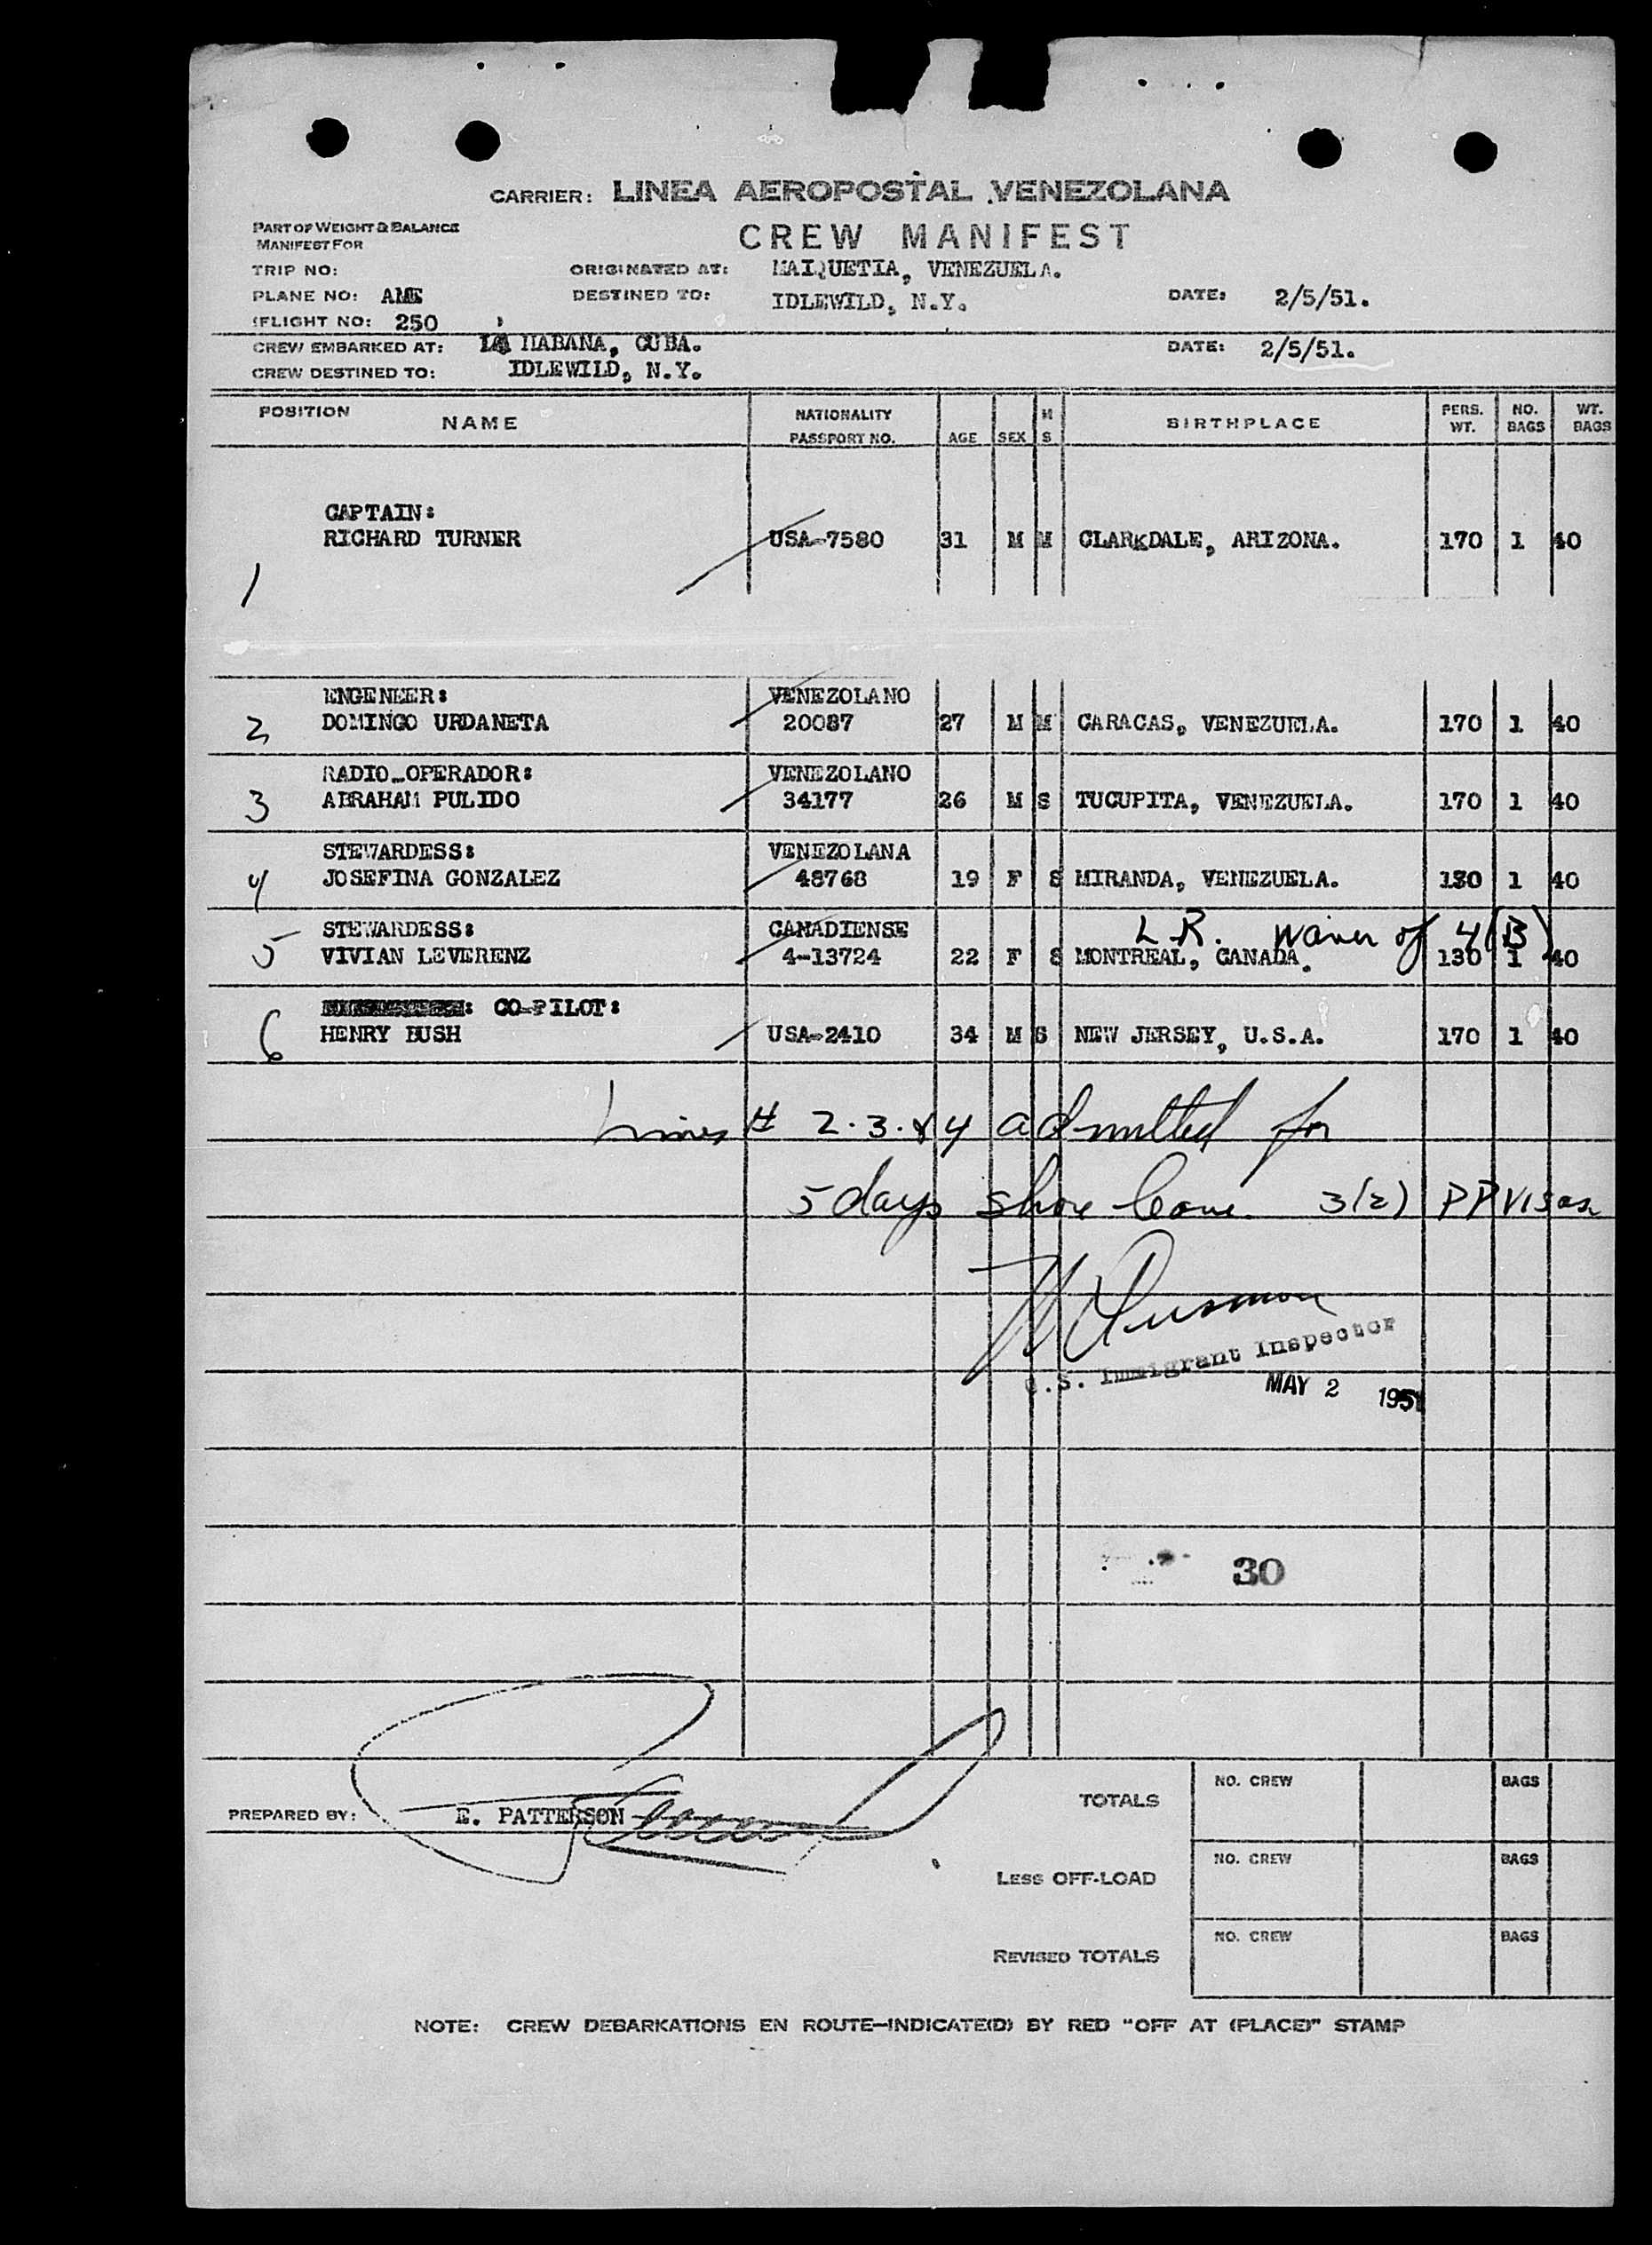 CARRIER: LINEA AEROPOSTAL VENEZOLANA
PART OF WEIGHT & BALANCE
MANIFEST FOR
CREW MANIFEST
TRIP NO:
ORIGINATED AT: MAIQUETIA, VENEZUELA.
PLANE NO: AME
DESTINED TO: IDLEWILD, N.Y.
DATE: 2/5/51.
FLIGHT NO: 250
CREW EMBARKED AT: LA HABANA, CUBA.
DATE: 2/5/51.
CREW DESTINED TO: IDLEWILD, N.Y.
POSITION NAME NATIONALITY PASSPORT NO. AGE SEX M S BIRTHPLACE PERS. WT. NO. BAGS WT. BAGS
CAPTAIN:
RICHARD TURNER USA-7580 31 M M CLARKDALE, ARIZONA. 170 1 40
1
ENGENEER: VENEZOLANO
2 DOMINGO URDANETA 20087 27 M M CARACAS, VENEZUELA. 170 1 40
RADIO-OPERADOR: VENEZOLANO
3 ABRAHAM PULIDO 34177 26 M S TUCUPITA, VENEZUELA. 170 1 40
STEWARDESS: VENEZOLANA
4 JOSEFINA GONZALEZ 48768 19 F S MIRANDA, VENEZUELA. 130 1 40
STEWARDESS: CANADIENSE L.R. Waiver of 4(B)
5 VIVIAN LEVERENZ 4-13724 22 F S MONTREAL, CANADA. 130 1 40
: CO-PILOT:
6 HENRY BUSH USA-2410 34 M S NEW JERSEY, U.S.A. 170 1 40
Lines # 2.3.&4 admitted for
5 days shore leave 3(2) PP Visas
U.S. Immigrant Inspector
MAY 2 1951
30
PREPARED BY: E. PATTERSON
TOTALS NO. CREW BAGS
LESS OFF-LOAD NO. CREW BAGS
REVISED TOTALS NO. CREW BAGS
NOTE: CREW DEBARKATIONS EN ROUTE—INDICATE(D) BY RED "OFF AT (PLACE)" STAMP